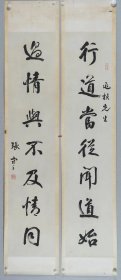 行道當從聞道始
先生
過情與不及情同
張